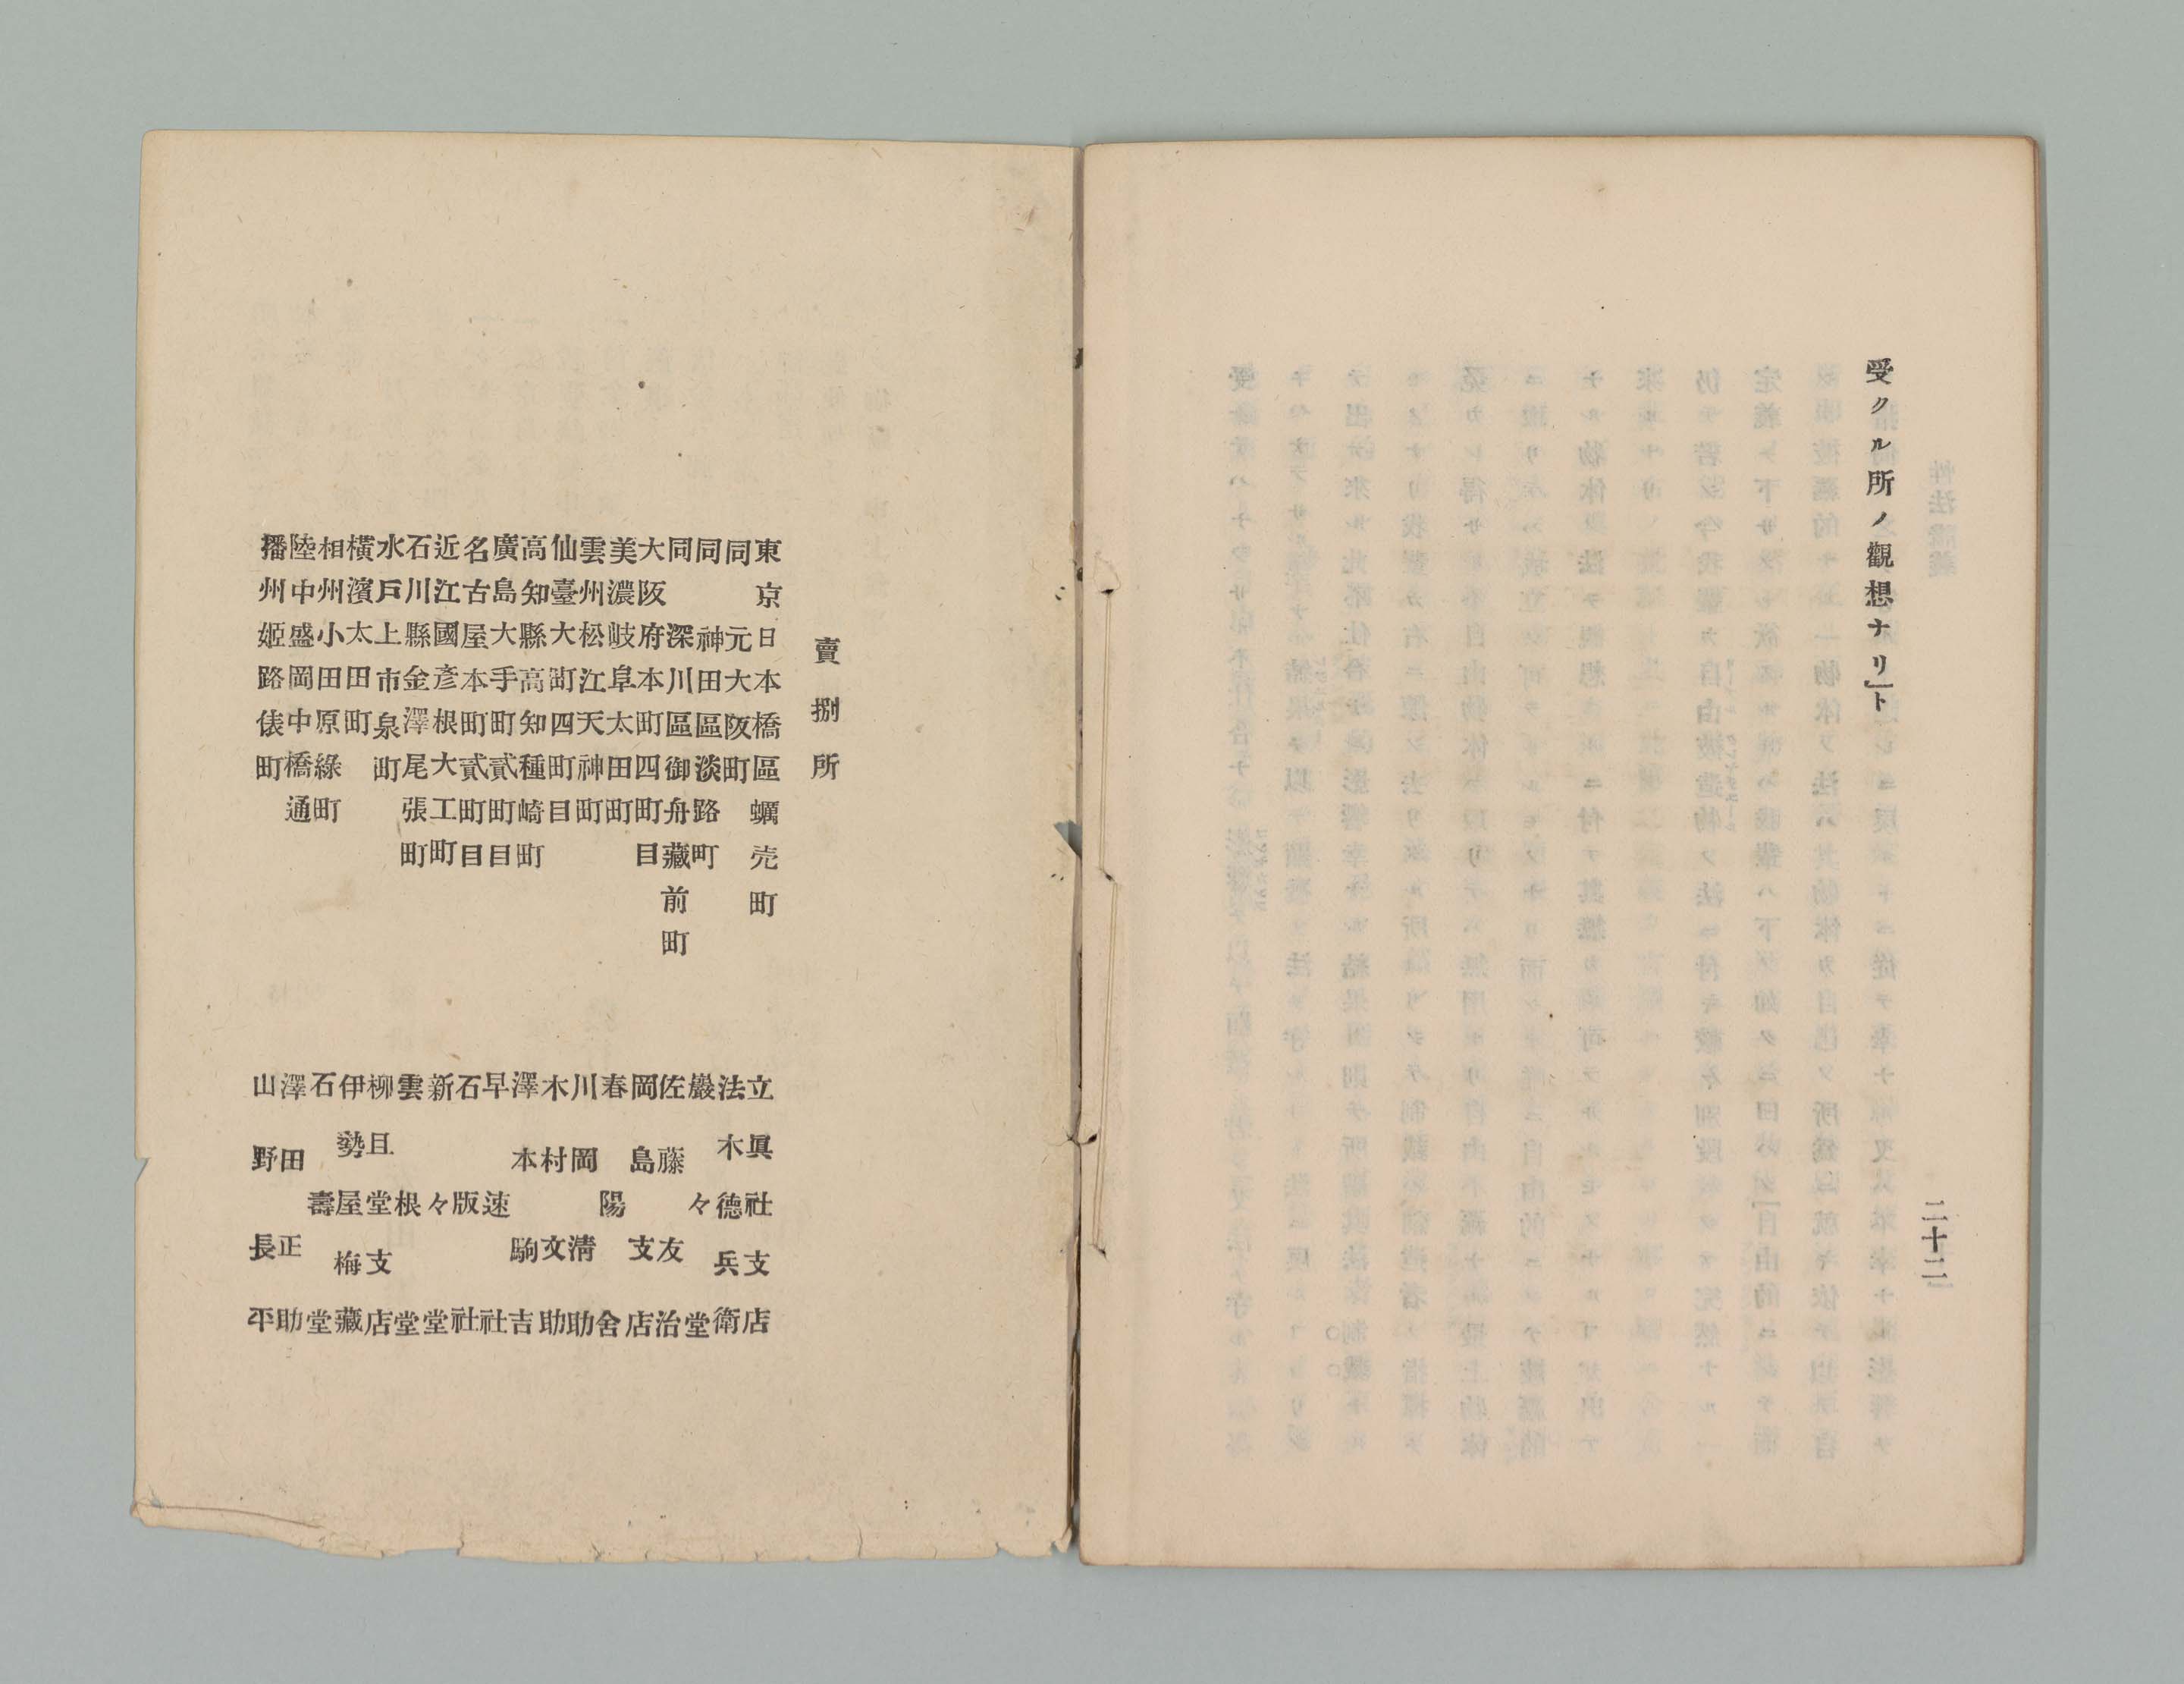 受クル所ノ觀想ナリ」ト
二十二
賣捌所
東京日本橋區蠣売町 立眞社支店
同元大阪町 法木德兵衛
同神田區淡路町 巖々堂
同深川區御舟藏前町 佐藤友治
大阪府本町四町目 岡島支店
美濃岐阜太田町 春陽舍
雲州松江天神町 川岡淸助
仙臺大町四町目 木村文助
高知縣高知種崎町 澤本駒吉
廣島大手町貳町目 早速社
名古屋本町貳町目 石版社
近江國彥根大工町 新々堂
石川縣金澤尾張町 雲根堂
水戶上市泉町 柳且堂支店
橫濱太田町 伊勢屋梅藏
相州小田原綠町 石壽堂
陸中盛岡中橋通 澤田正助
播州姬路俵町 山野長平